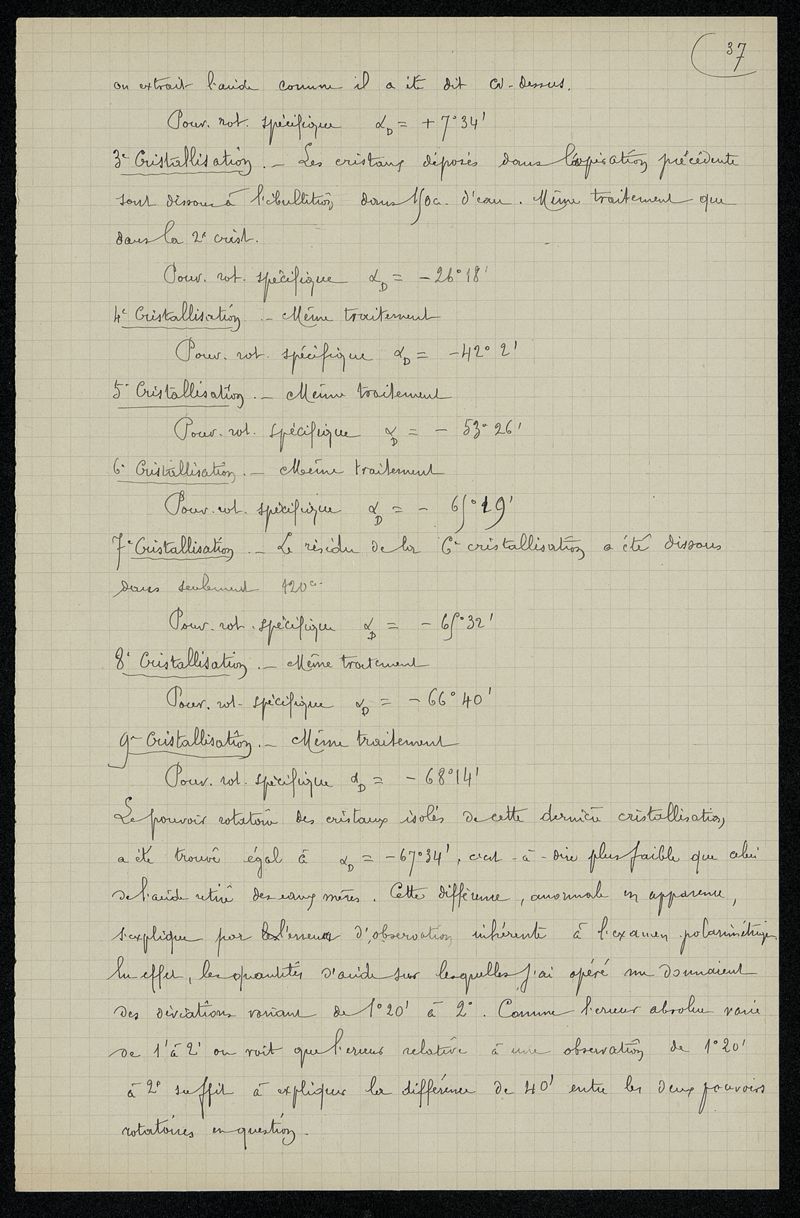 37
on extrait l'acide comme il a été dit ci-dessus.
Pouv. rot. spécifique α_D = + 7°34'
3e Cristallisation. — Les cristaux déposés dans l'opération précédente
sont dissous à l'ébullition dans 150cc. d'eau. Même traitement que
dans la 2e crist.
Pouv. rot. spécifique α_D = – 26°18'
4e Cristallisation. — Même traitement
Pouv. rot. spécifique α_D = – 42° 2'
5e Cristallisation. — Même traitement
Pouv. rot. spécifique α_D = – 53°26'
6e Cristallisation. — Même traitement
Pouv. rot. spécifique α_D = – 65°19'
7e Cristallisation. — Le résidu de la 6e cristallisation a été dissous
dans seulement 120cc.
Pouv. rot. spécifique α_D = – 65°32'
8e Cristallisation. — Même traitement
Pouv. rot. spécifique α_D = – 66°40'
9e Cristallisation. — Même traitement
Pouv. rot. spécifique α_D = – 68°14'
Le pouvoir rotatoire des cristaux isolés de cette dernière cristallisation
a été trouvé égal à α_D = – 67°34', c'est-à-dire plus faible que celui
de l'acide retiré des eaux mères. Cette différence, anormale en apparence,
s'explique par l'erreur d'observation inhérente à l'examen polarimétrique
En effet, les quantités d'acide sur lesquelles j'ai opéré me donnaient
des déviations variant de 1°20' à 2°. Comme l'erreur absolue varie
de 1' à 2' on voit que l'erreur relative à une observation de 1°20'
à 2° suffit à expliquer la différence de 40' entre les deux pouvoirs
rotatoires en question.